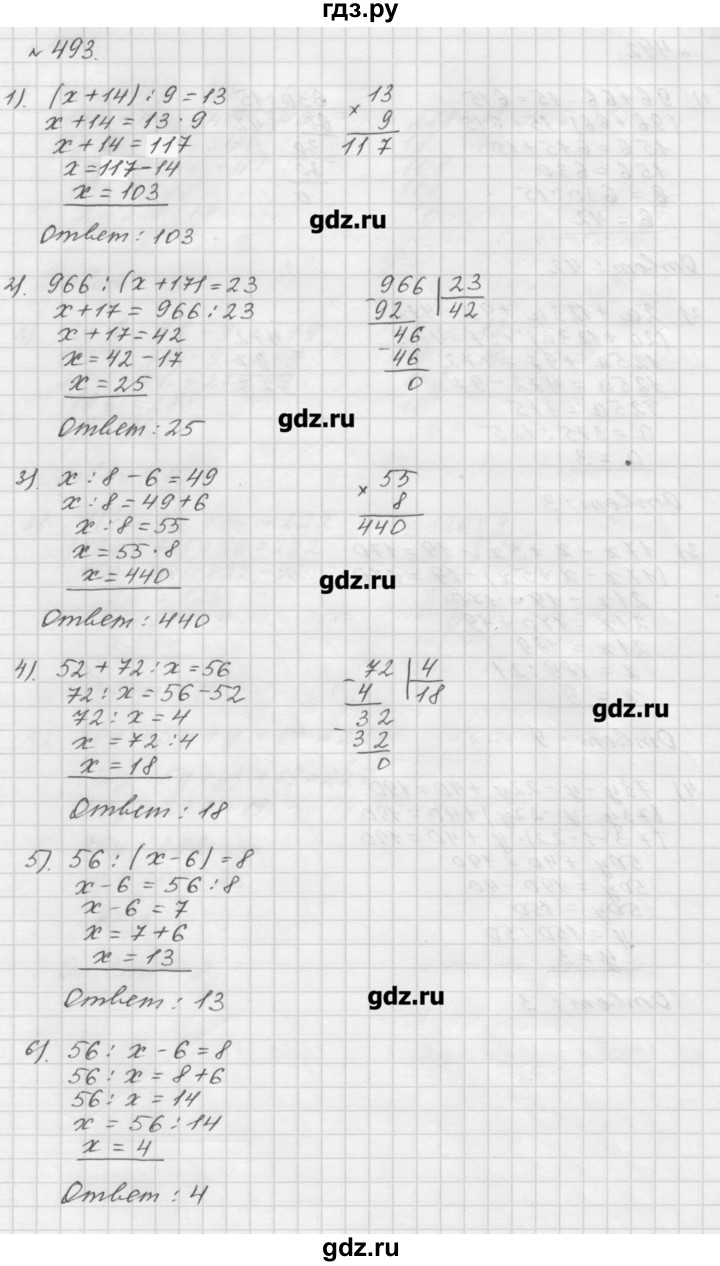 гдз.ру
№ 493.
1). (x+14) : 9 = 13
x + 14 = 13 · 9
x + 14 = 117
x = 117 - 14
x = 103
× 13
9
117
Ответ: 103
gdz.ru
2). 966 : (x + 17) = 23
x + 17 = 966 : 23
x + 17 = 42
x = 42 - 17
x = 25
- 966 | 23
92 42
46
- 46
0
Ответ: 25
gdz.ru
3). x : 8 - 6 = 49
x : 8 = 49 + 6
x : 8 = 55
x = 55 · 8
x = 440
× 55
8
440
gdz.ru
Ответ: 440
4). 52 + 72 : x = 56
72 : x = 56 - 52
72 : x = 4
x = 72 : 4
x = 18
- 72 | 4
4 18
32
- 32
0
gdz.ru
Ответ: 18
5). 56 : (x - 6) = 8
x - 6 = 56 : 8
x - 6 = 7
x = 7 + 6
x = 13
Ответ: 13
gdz.ru
6). 56 : x - 6 = 8
56 : x = 8 + 6
56 : x = 14
x = 56 : 14
x = 4
Ответ: 4
gdz.ru